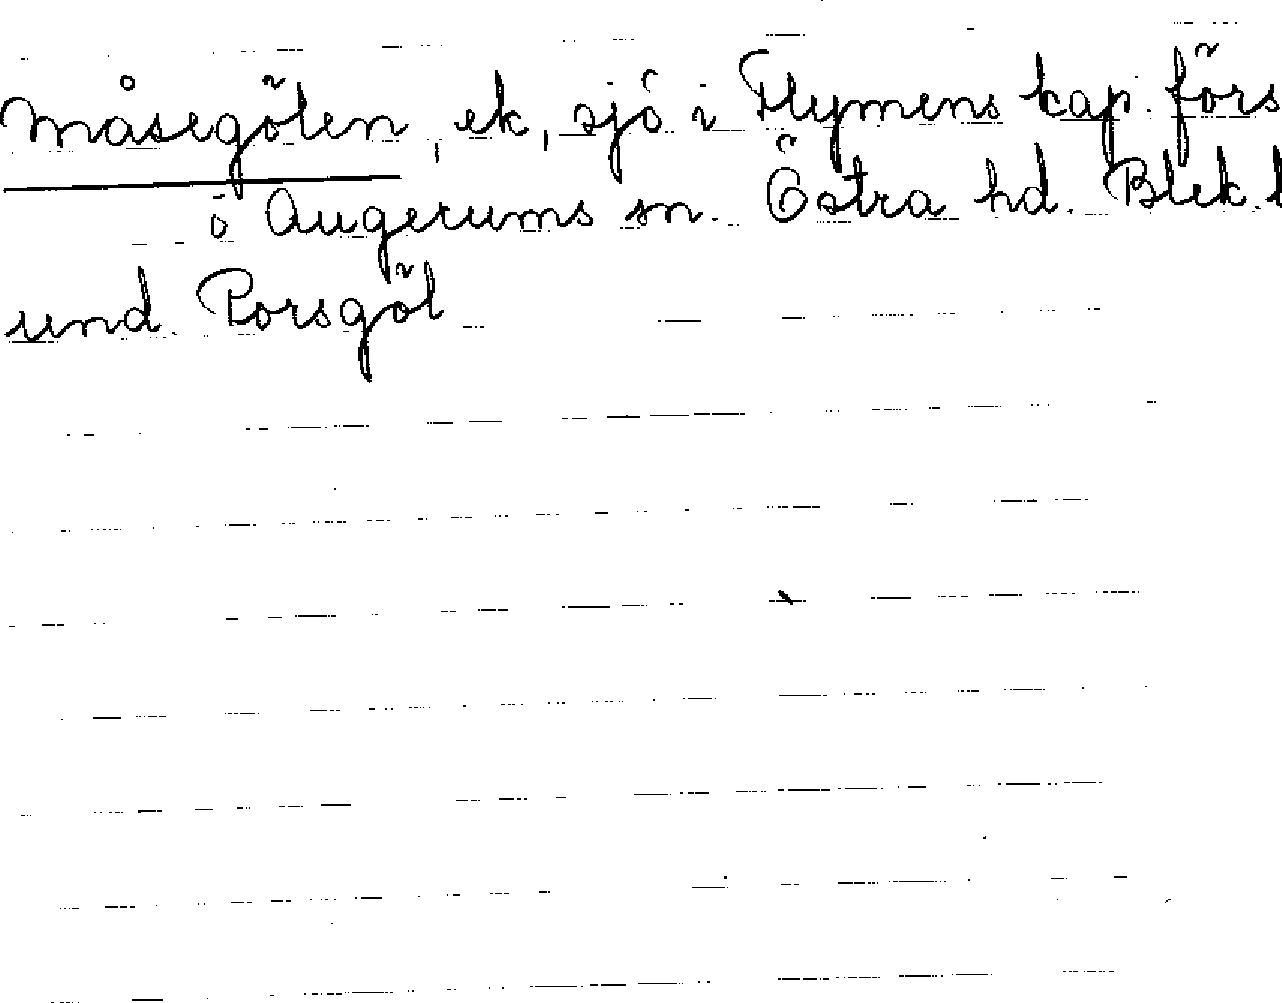 Måsegölen, ek, sjö i Flymens kap. förs
ö Augerums sn. Östra hd. Blek. l
und. Porsgöl